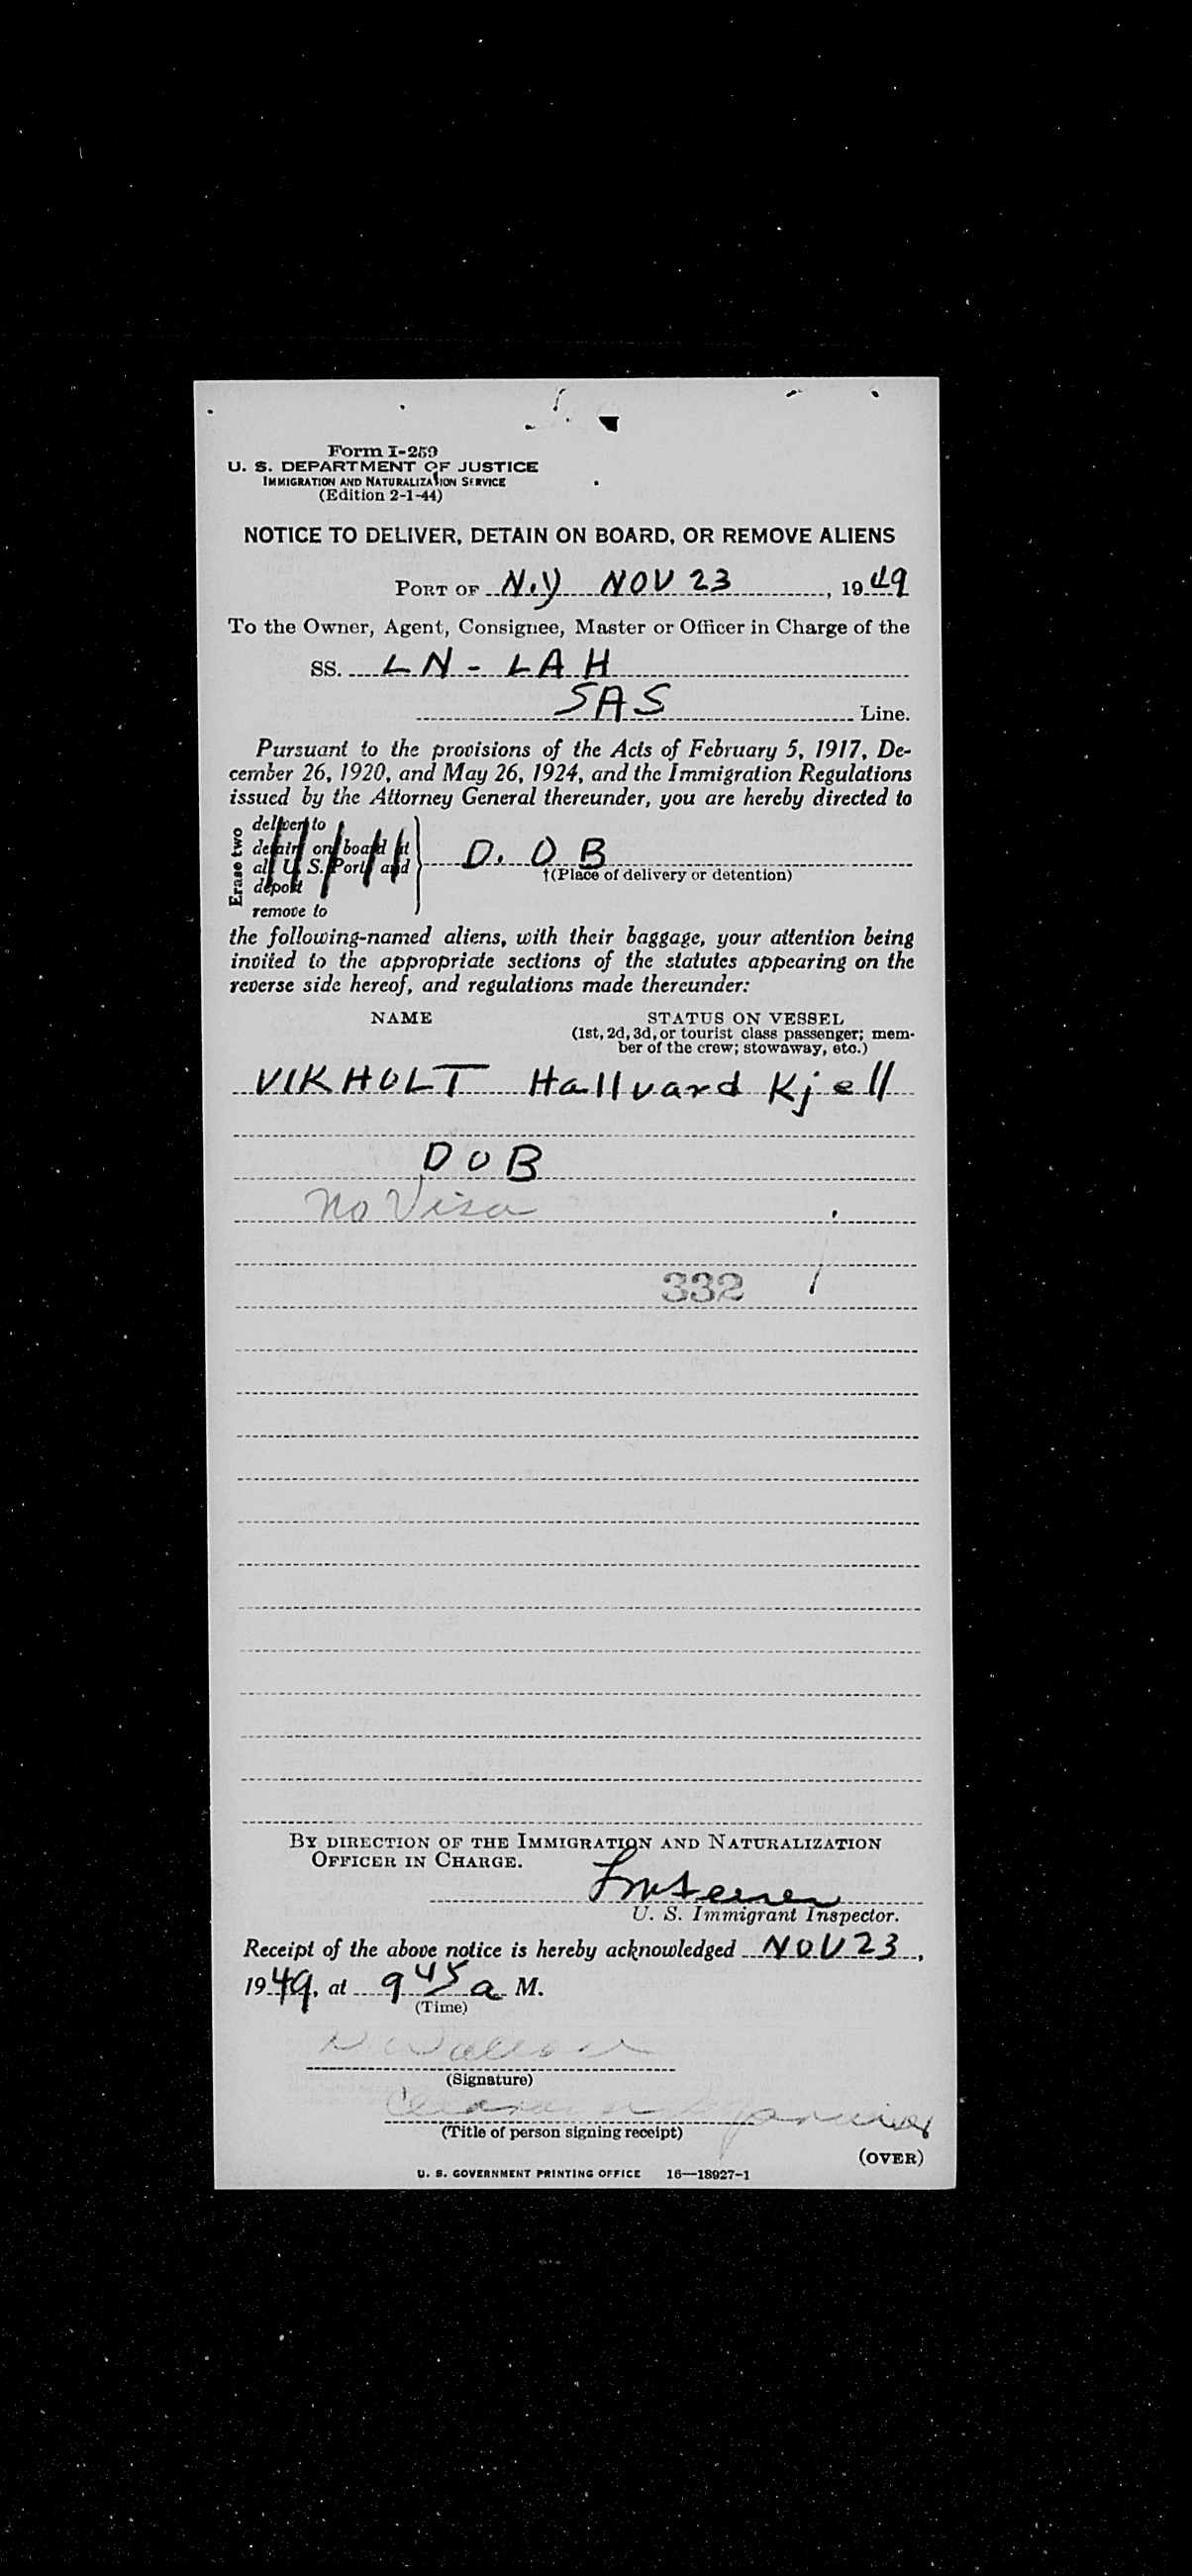 Form I-259
U. S. DEPARTMENT OF JUSTICE
IMMIGRATION AND NATURALIZATION SERVICE
(Edition 2-1-44)
NOTICE TO DELIVER, DETAIN ON BOARD, OR REMOVE ALIENS
PORT OF N.Y NOV 23, 1949
To the Owner, Agent, Consignee, Master or Officer in Charge of the
SS. LN-LAH
SAS Line.
Pursuant to the provisions of the Acts of February 5, 1917, De-
cember 26, 1920, and May 26, 1924, and the Immigration Regulations
issued by the Attorney General thereunder, you are hereby directed to
Erase two
deliver to
detain on board at
all U. S. Ports and
deport
remove to
D. O B
†(Place of delivery or detention)
the following-named aliens, with their baggage, your attention being
invited to the appropriate sections of the statutes appearing on the
reverse side hereof, and regulations made thereunder:
NAME STATUS ON VESSEL
(1st, 2d, 3d, or tourist class passenger; mem-
ber of the crew; stowaway, etc.)
VIKHOLT Hallvard Kjell
DOB
No Visa
332
BY DIRECTION OF THE IMMIGRATION AND NATURALIZATION
OFFICER IN CHARGE.
U. S. Immigrant Inspector.
Receipt of the above notice is hereby acknowledged NOV 23,
1949, at 9 45 a M.
(Time)
(Signature)
(Title of person signing receipt)
(OVER)
U. S. GOVERNMENT PRINTING OFFICE 16—18927-1